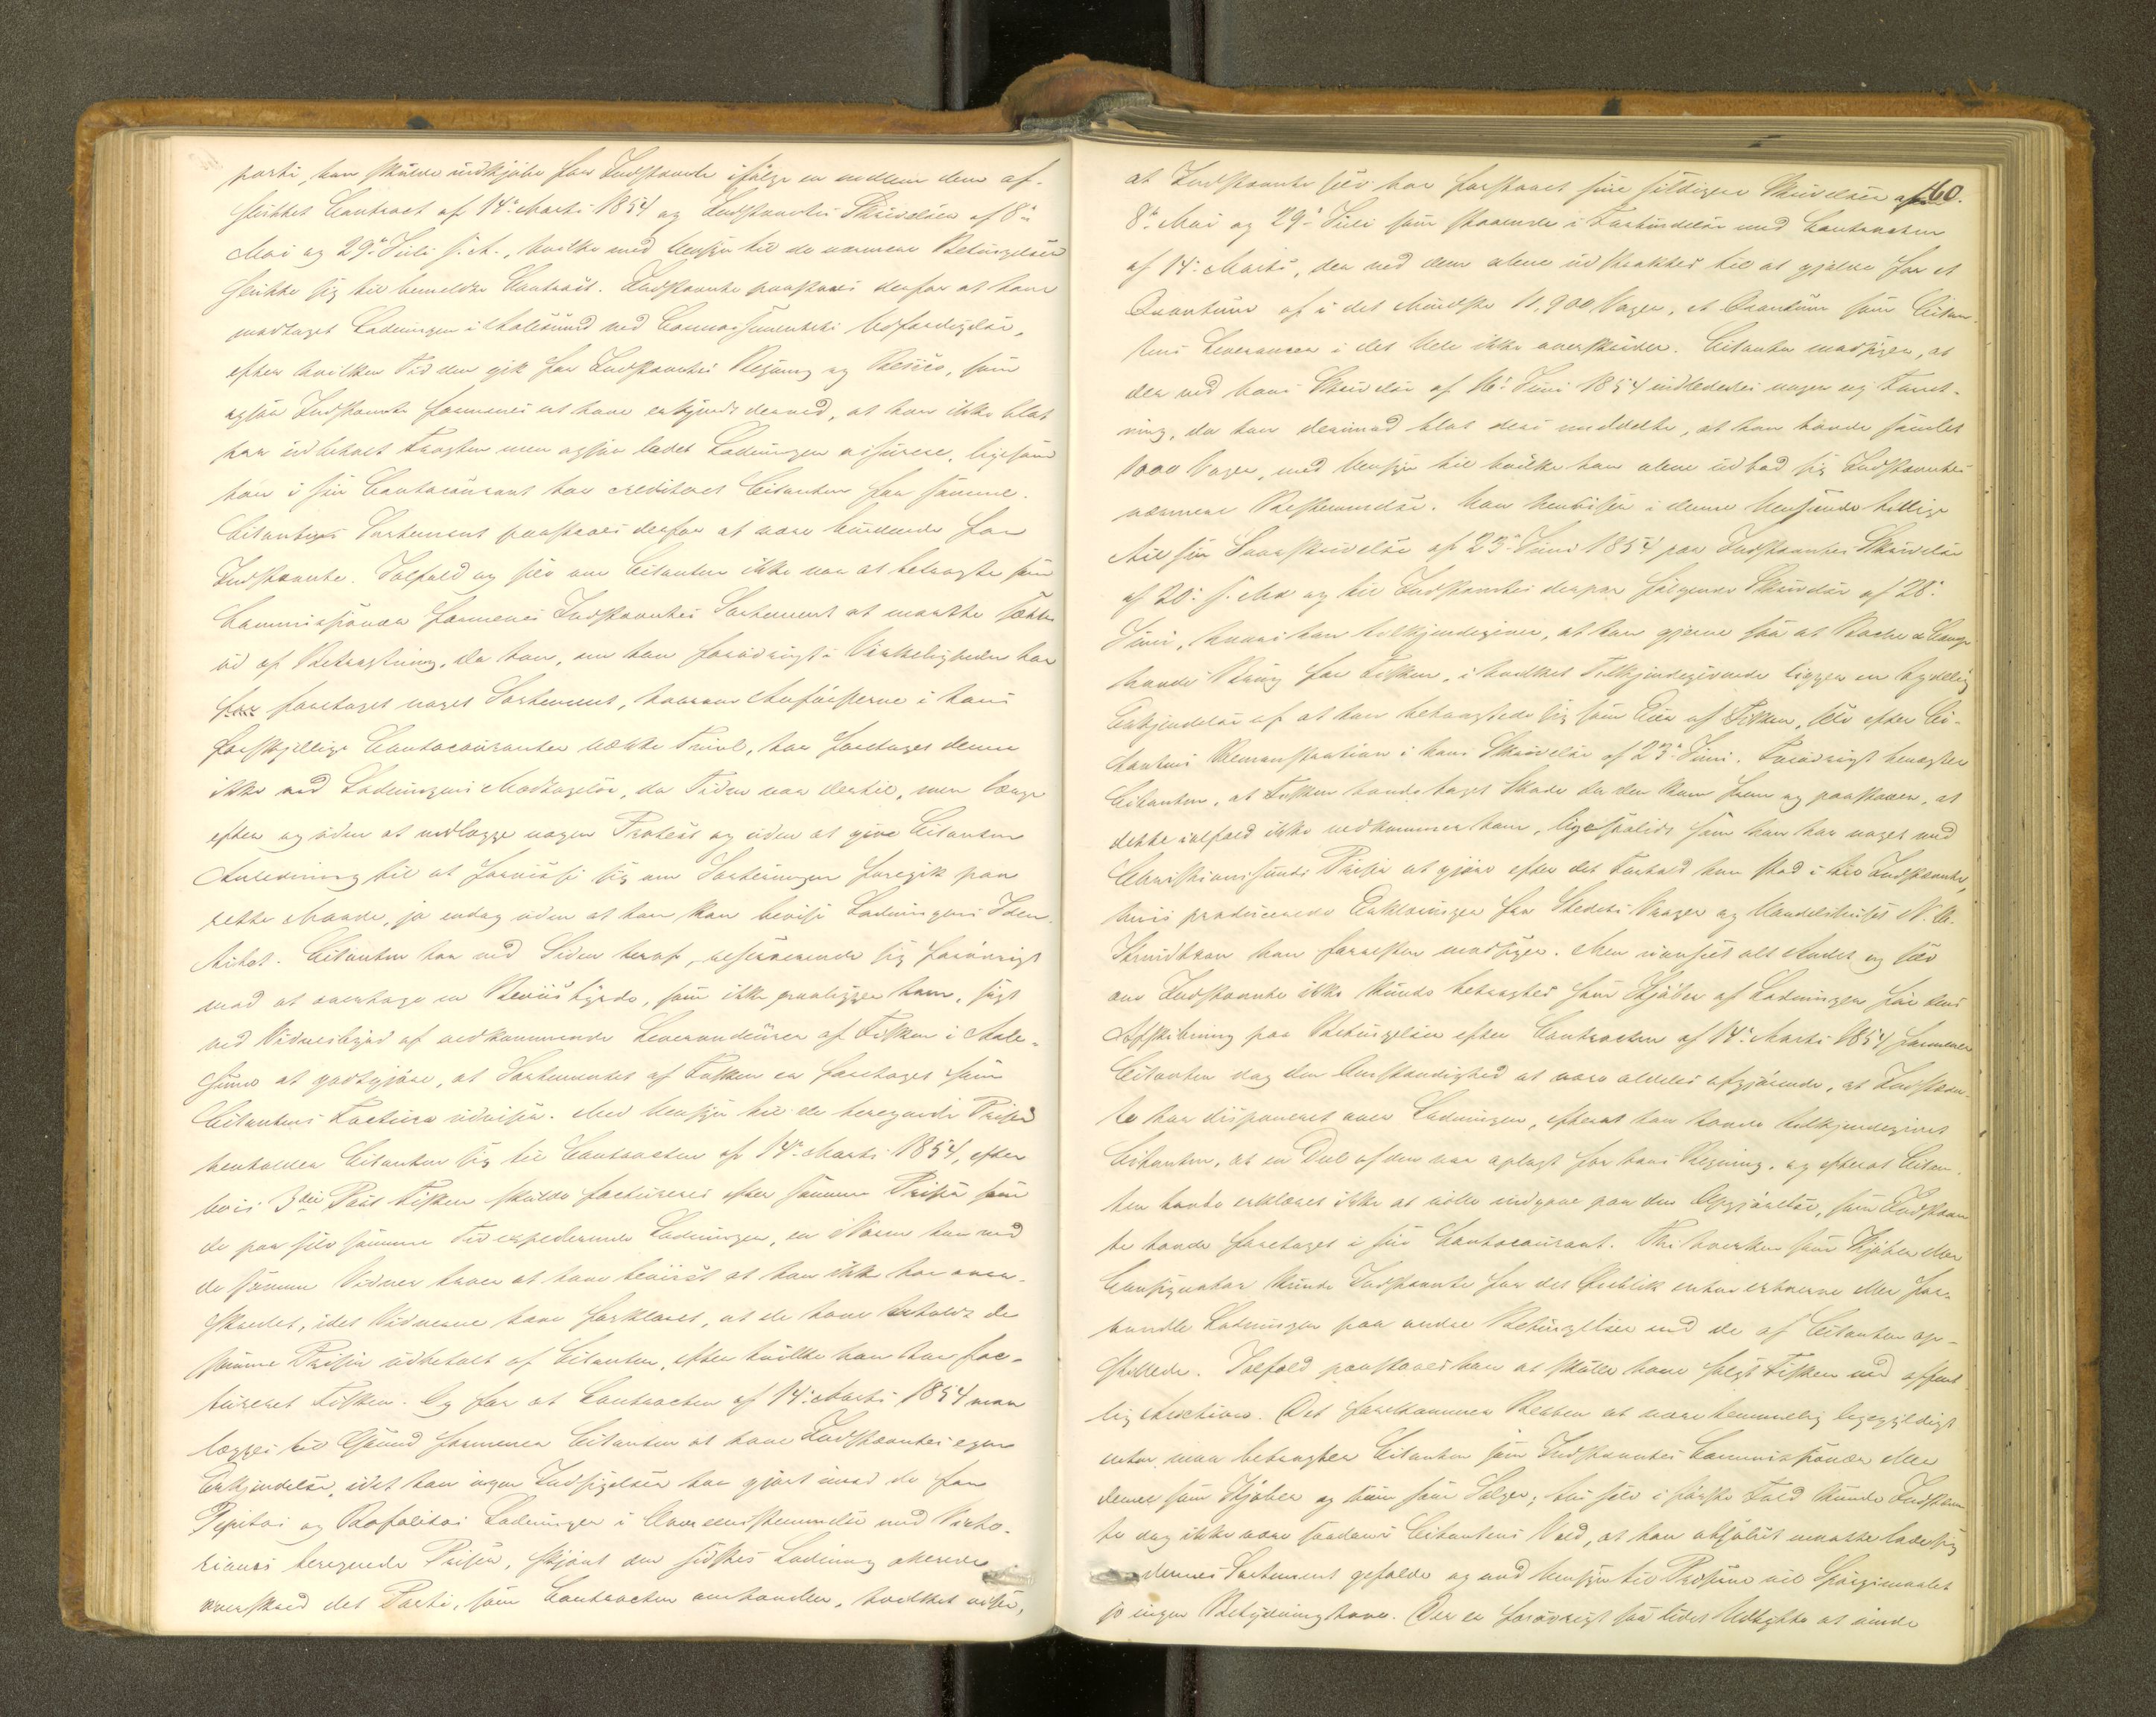 parti, han skulde indkjøbe for Indstævnte ifølge en mellem dem af-
sluttet Contract af 14de Marts 1854 og Indstævntes Skrivelser af 8de
Mai og 29de Juli s. A., hvilke med Hensyn til de nærmere Betingelser
slutte sig til bemeldte Contract. Indstævnte paastaaes derfor at have
modtaget Ladningen i Aalesund ved Connossementets Udfærdigelse,
efter hvilken Tid den gik for Indstævntes Regning og Resico, som
ogsaa Indstævnte formenes at have erkjendt derved, at han ikke blot
har udbetalt Fragten men ogsaa ladet Ladningen assurere, ligesom
han i sin Contocourant har crediteret Citanten for samme.
Citantens Sortement paastaaes derfor at være bindende for
Indstævnte. Ialfald og selv om Citanten ikke var at betragte som
Commissionær formenes Indstævntes Sortement at maatte sættes
ud af Betragtning, da han, om han forøvrigt i Virkeligheden har
foretaget noget Sortement, hvorom Anførslerne i hans
forskjellige Contocouranter vække Tvivl, har foretaget denne
ikke ved Ladningens Modtagelse, da Tiden var dertil, men længe
efter og uden at nedlægge nogen Protest og uden at give Citanten
Anledning til at forvisse sig om Sorteringen foregik paa
rette Maade, ja endog uden at han kan bevise Ladningens Iden-
titet. Citanten har ved Siden heraf, reserverende sig forøvrigt
mod at overtage en Beviisbyrde, som ikke paaligger ham, søgt
ved Vidnesbyrd af vedkommende Leverandeurer af Fisken i Aale-
sund at godtgjøre, at Sortementet af Fisken er foretaget som
Citantens Factura udviser. Med Hensyn til de beregnede Priser
henholder Citanten sig til Contracten af 14de Marts 1854, efter
hvis 3die Post Fisken skulde factureres efter samme Priser som
de paa selv samme Tid expederende Ladninger, en Norm han ved
de samme Vidner haver at have beviist at han ikke har over-
skredet, idet Vidnerne have forklaret, at de have erholdt de
samme Priser udbetalt af Citanten, efter hvilke han har fac-
tureret Fisken. Og for at Contracten af 14de Marts 1854 maa
lægges til Grund formener Citanten at have Indstævntes egen
Erkjendelse, idet han ingen Indsigelser har gjort imod de for
Pepitas og Rafalitas Ladninger i Overeensstemmelse med Victo-
rianas beregnede Priser, skjønt den sidstes Ladning allerede
overskred det Parti, som Contracten omhandler, hvilket viser,
160.
at Indstævnte selv har forstaaet sine sildigere Skrivelser af
8de Mai og 29de Juli som staaende i Forbindelse med Contracten
af 14de Marts, der ved dem alene udstraktes til at gjælde for et
Quantum af i det Mindste 11,900 Voger, et Quantum som Citan-
tens Leverancer i det Hele ikke overskrider. Citanten modsiger, at
der ved hans Skrivelse af 16de Juni 1854 indlededes nogen ny Forret-
ning, da han derimod blot deri meddelte, at han havde samlet
1000 Voger, med Hensyn til hvilke han alene udbad sig Indstævntes
nærmere Bestemmelse. Han henviser i denne Henseende tillige
til sin Svarskrivelse af 23de Juni 1854 paa Indstævntes Skrivelse
af 20de s. M. og til Indstævntes derpaa følgende Skrivelse af 28de
Juni, hvori han tilkjendegiver, at han gjerne saa at Roche & Comp.
havde Brug for Fisken, i hvilket Tilkjendegivende ligger en tydelig
Erkjendelse af at han betragtede sig som Eier af Fisken, selv efter Ci-
tantens Remonstration i hans Skrivelse af 23de Juni. Forøvrigt benægter
Citanten, at Fisken havde taget Skade da den kom frem og paastaaer, at
dette ialfald ikke vedkommer ham, ligesaalidt som han har noget med
Christianssunds Priser at gjøre efter det Forhold han stod i til Indstævnte,
hvis producerede Erklæringer fra Stedets Vrager og Handelshuset N. H.
Knudtzon han forresten modsiger. Men uanseet alt Andet og selv
om Indstævnte ikke kunde betragtes som Kjøber af Ladningen før dens
Afskibning paa Betingelser efter Contracten af 14de Marts 1854 formener
Citanten dog den Omstændighed at være aldeles afgjørende, at Indstævn-
te har disponeret over Ladningen, efterat han havde tilkjendegivet
Citanten, at en Deel af den var oplagt for hans Regning, og efterat Citan-
ten havde erklæret ikke at ville indgaae paa den Opgjørelse, som Indstævn-
te havde foretaget i sin Contocourant. Thi hverken som Kjøber eller
Consignatar kunde Indstævnte for det Øieblik enten erhverve eller for-
handle Ladningen paa andre Betingelser end de af Citanten op-
stillede. Ialfald paastaaes han at skulle have solgt Fisken ved offent-
lig Auction. Det forekommer Retten at være temmelig ligegyldigt
enten man betragter Citanten som Indstævntes Commissionær eller
denne som Kjøber og hiin som Sælger; thi selv i første Fald kunde Indstævn-
te dog ikke være saadan i Citantens Vold, at han absolut maatte lade sig
dennes Sortement gefalde og med Hensyn til Priserne vil Spørgsmaalet
jo ingen Betydning have. Der er forøvrigt saa lidet Udbytte at vinde